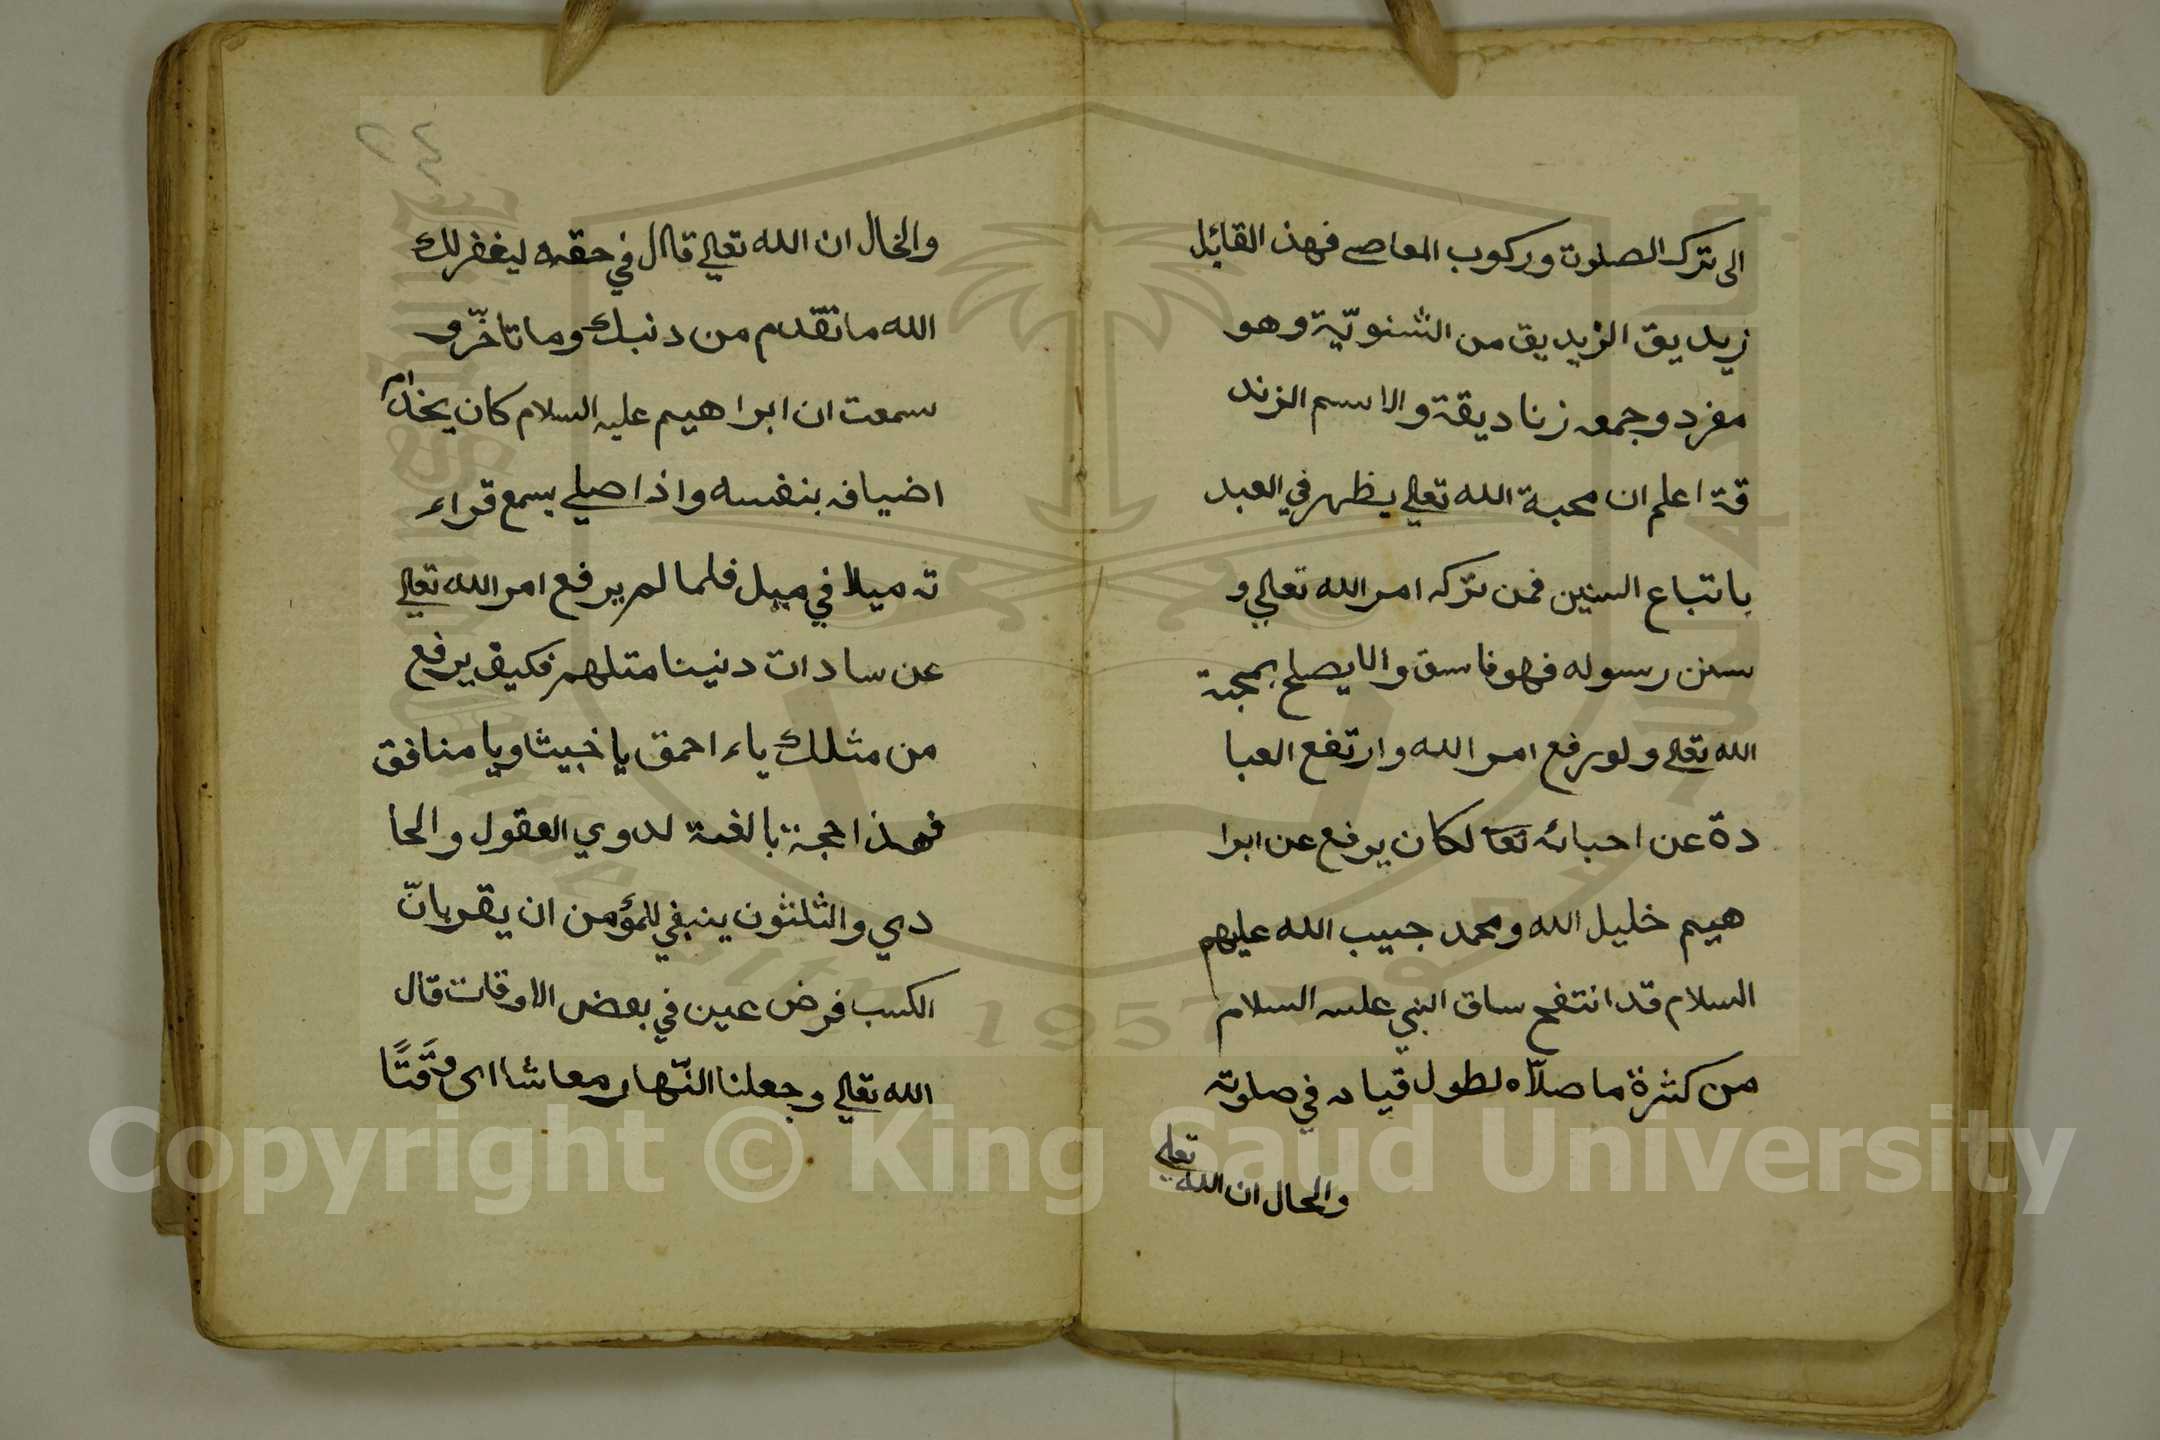 الى ترك الصلوة وركوب المعاصى فهذ القائل
زيديق الزيديق من الشنويّة وهو
مفرد وجمعه زناديقة والاسم الزند
قة اعلم ان محبة الله تعالى يظهر في العبد
باتباع السنين فمن تركه امر الله تعالي و
سنن رسوله فهو فاسق والايصلح بمحبة
الله تعالى ولو رفع امر الله وارتفع العبا
دة عن احبائه تعا لكان يرفع عن ابرا
هيم خليل الله ومحمد حبيب الله عليهم
السلام قد انتفح ساق النبي عليه السلام
من كثرة ما صلّاه لطول قيامه في صلوته
والحال ان الله تعلى
٢٤
والخال ان الله تعالى قال في حقه ليغفر لك
الله ما تقدم من دنبك وما تاخّر و
سمعت ان ابراهيم عليه السلام كان يخدام
اضيافه بنفسه واذا صلى يسمع قراء
ته ميلا في ميل فلما لم يرفع امر الله تعالى
عن سادات دنينا متلهم فكيف يرفع
من مثلك ياء احمق يا خبيثا ويا منافق
فهذا حجة بالغة لدوي العقول والحا
دي والثلثون ينبغي للمؤمن ان يقر بانّ
الكسب فرض عين في بعض الاوقات قال
الله تعالى وجعلنا النّهار معاشا اى وَقتًا
Copyright © King Saud University
1957